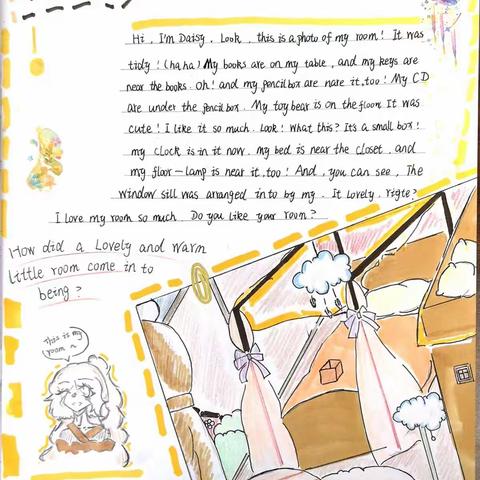 Hi, I'm Daisy. Look, this is a photo of my room! It was
tidy! (haha) My books are on my table, and my keys are
near the books. Oh! and my pencil box are nare it, too! My CD
are under the pencil box. My toy bear is on the floor. It was
cute! I like it so much. Look! What this? It's a small box!
my clock is in it now. my bed is near the closet, and
my floor-lamp is near it, too! And, you can see, The
window sill was arranged into by my. It lovely, rigte?
I love my room so much. Do you like your room?
How did a Lovely and warm
little room come in to
being?
This is my
room ^